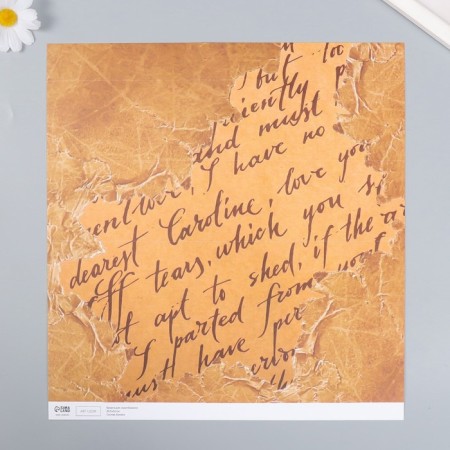 but too
iently p
and must
ent love, I have no
dearest Caroline, love you
off tears, which you s
ot apt to shed, if the a
I parted from your
ust have per